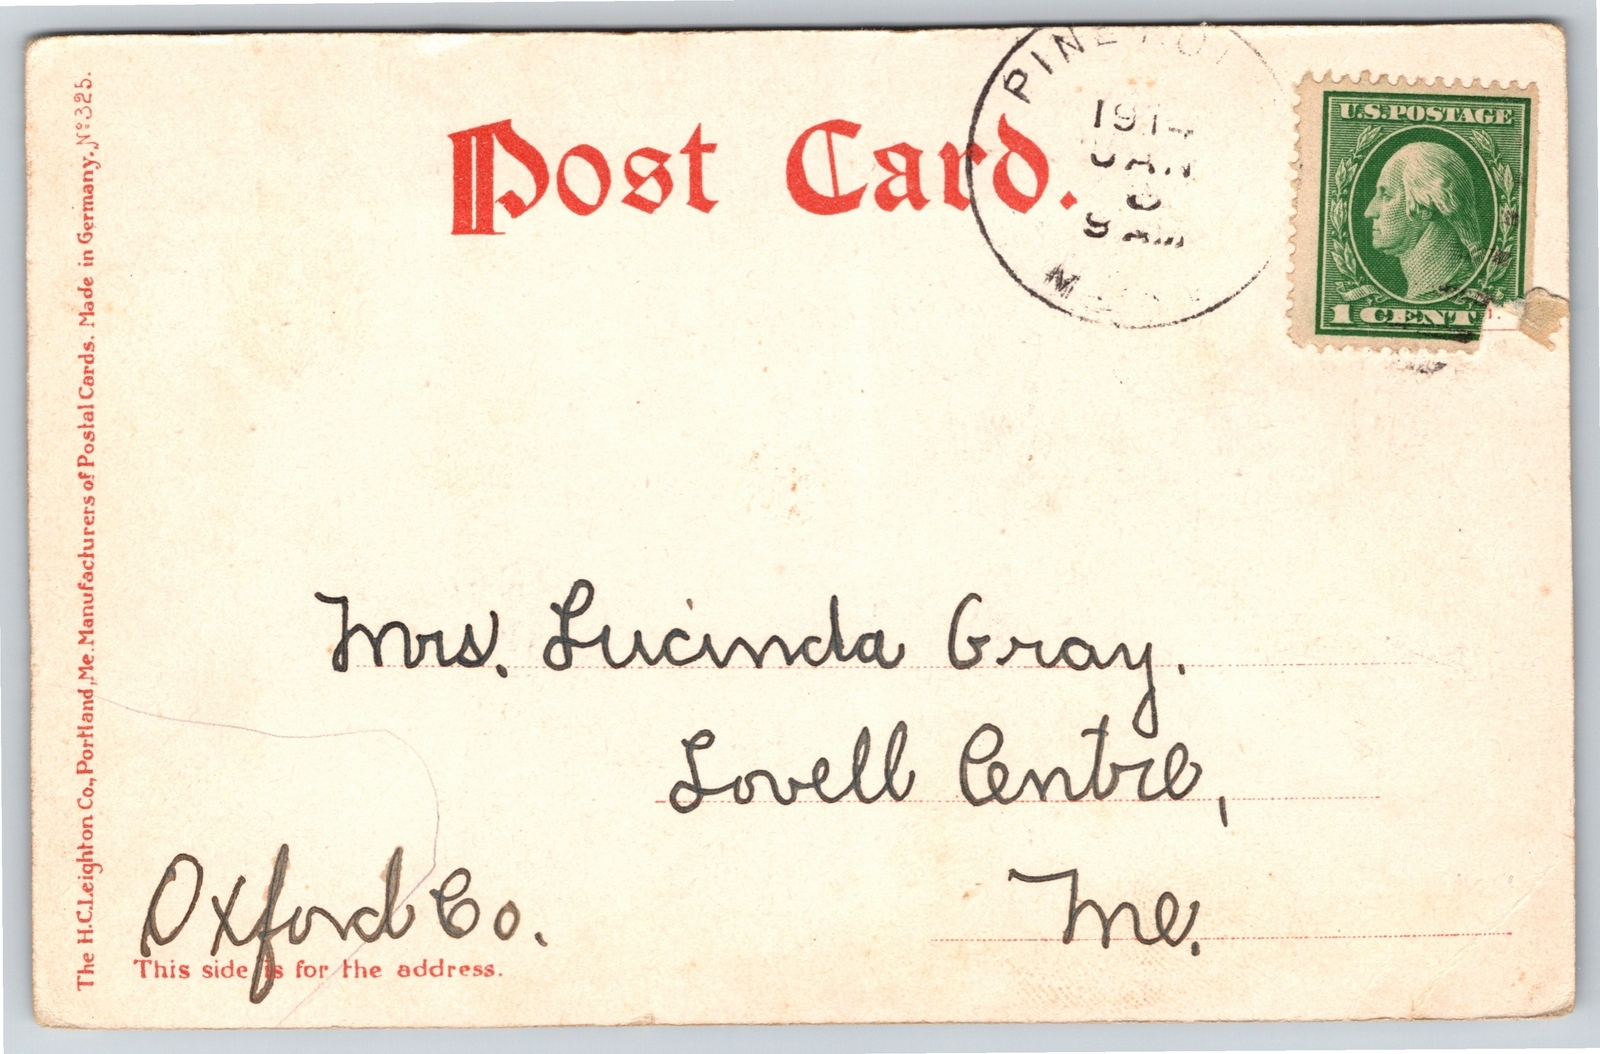 Post Card.
1914
JAN
9 AM
U.S.POSTAGE
1 CENT
Mrs. Lucinda Gray.
Lovell Centre,
Me.
Oxford Co.
This side is for the address.
The H.C.Leighton Co., Portland, Me. Manufacturers of Postal Cards. Made in Germany. No 325.